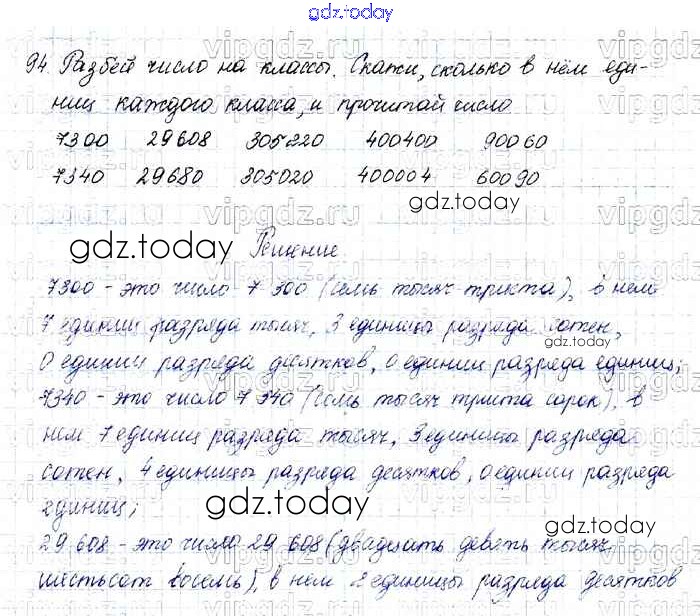 gdz.today
94. Разбей число на классы. Скажи, сколько в нём еди-
ниц каждого класса, и прочитай число.
7300 29608 305220 400400 90060
7340 29680 305020 400004 60090
gdz.today
gdz.today Решение
7300 - это число 7 300 (семь тысяч триста), в нем
7 единиц разряда тысяч, 3 единицы разряда сотен,
0 единиц разряда десятков, 0 единиц разряда единиц;
7340 - это число 7 340 (семь тысяч триста сорок), в
нем 7 единиц разряда тысяч, 3 единицы разряда
сотен, 4 единицы разряда десятков, 0 единиц разряда
единиц;
gdz.today gdz.today
29 608 - это число 29 608 (двадцать девять тысяч
шестьсот восемь), в нем 2 единицы разряда десятков